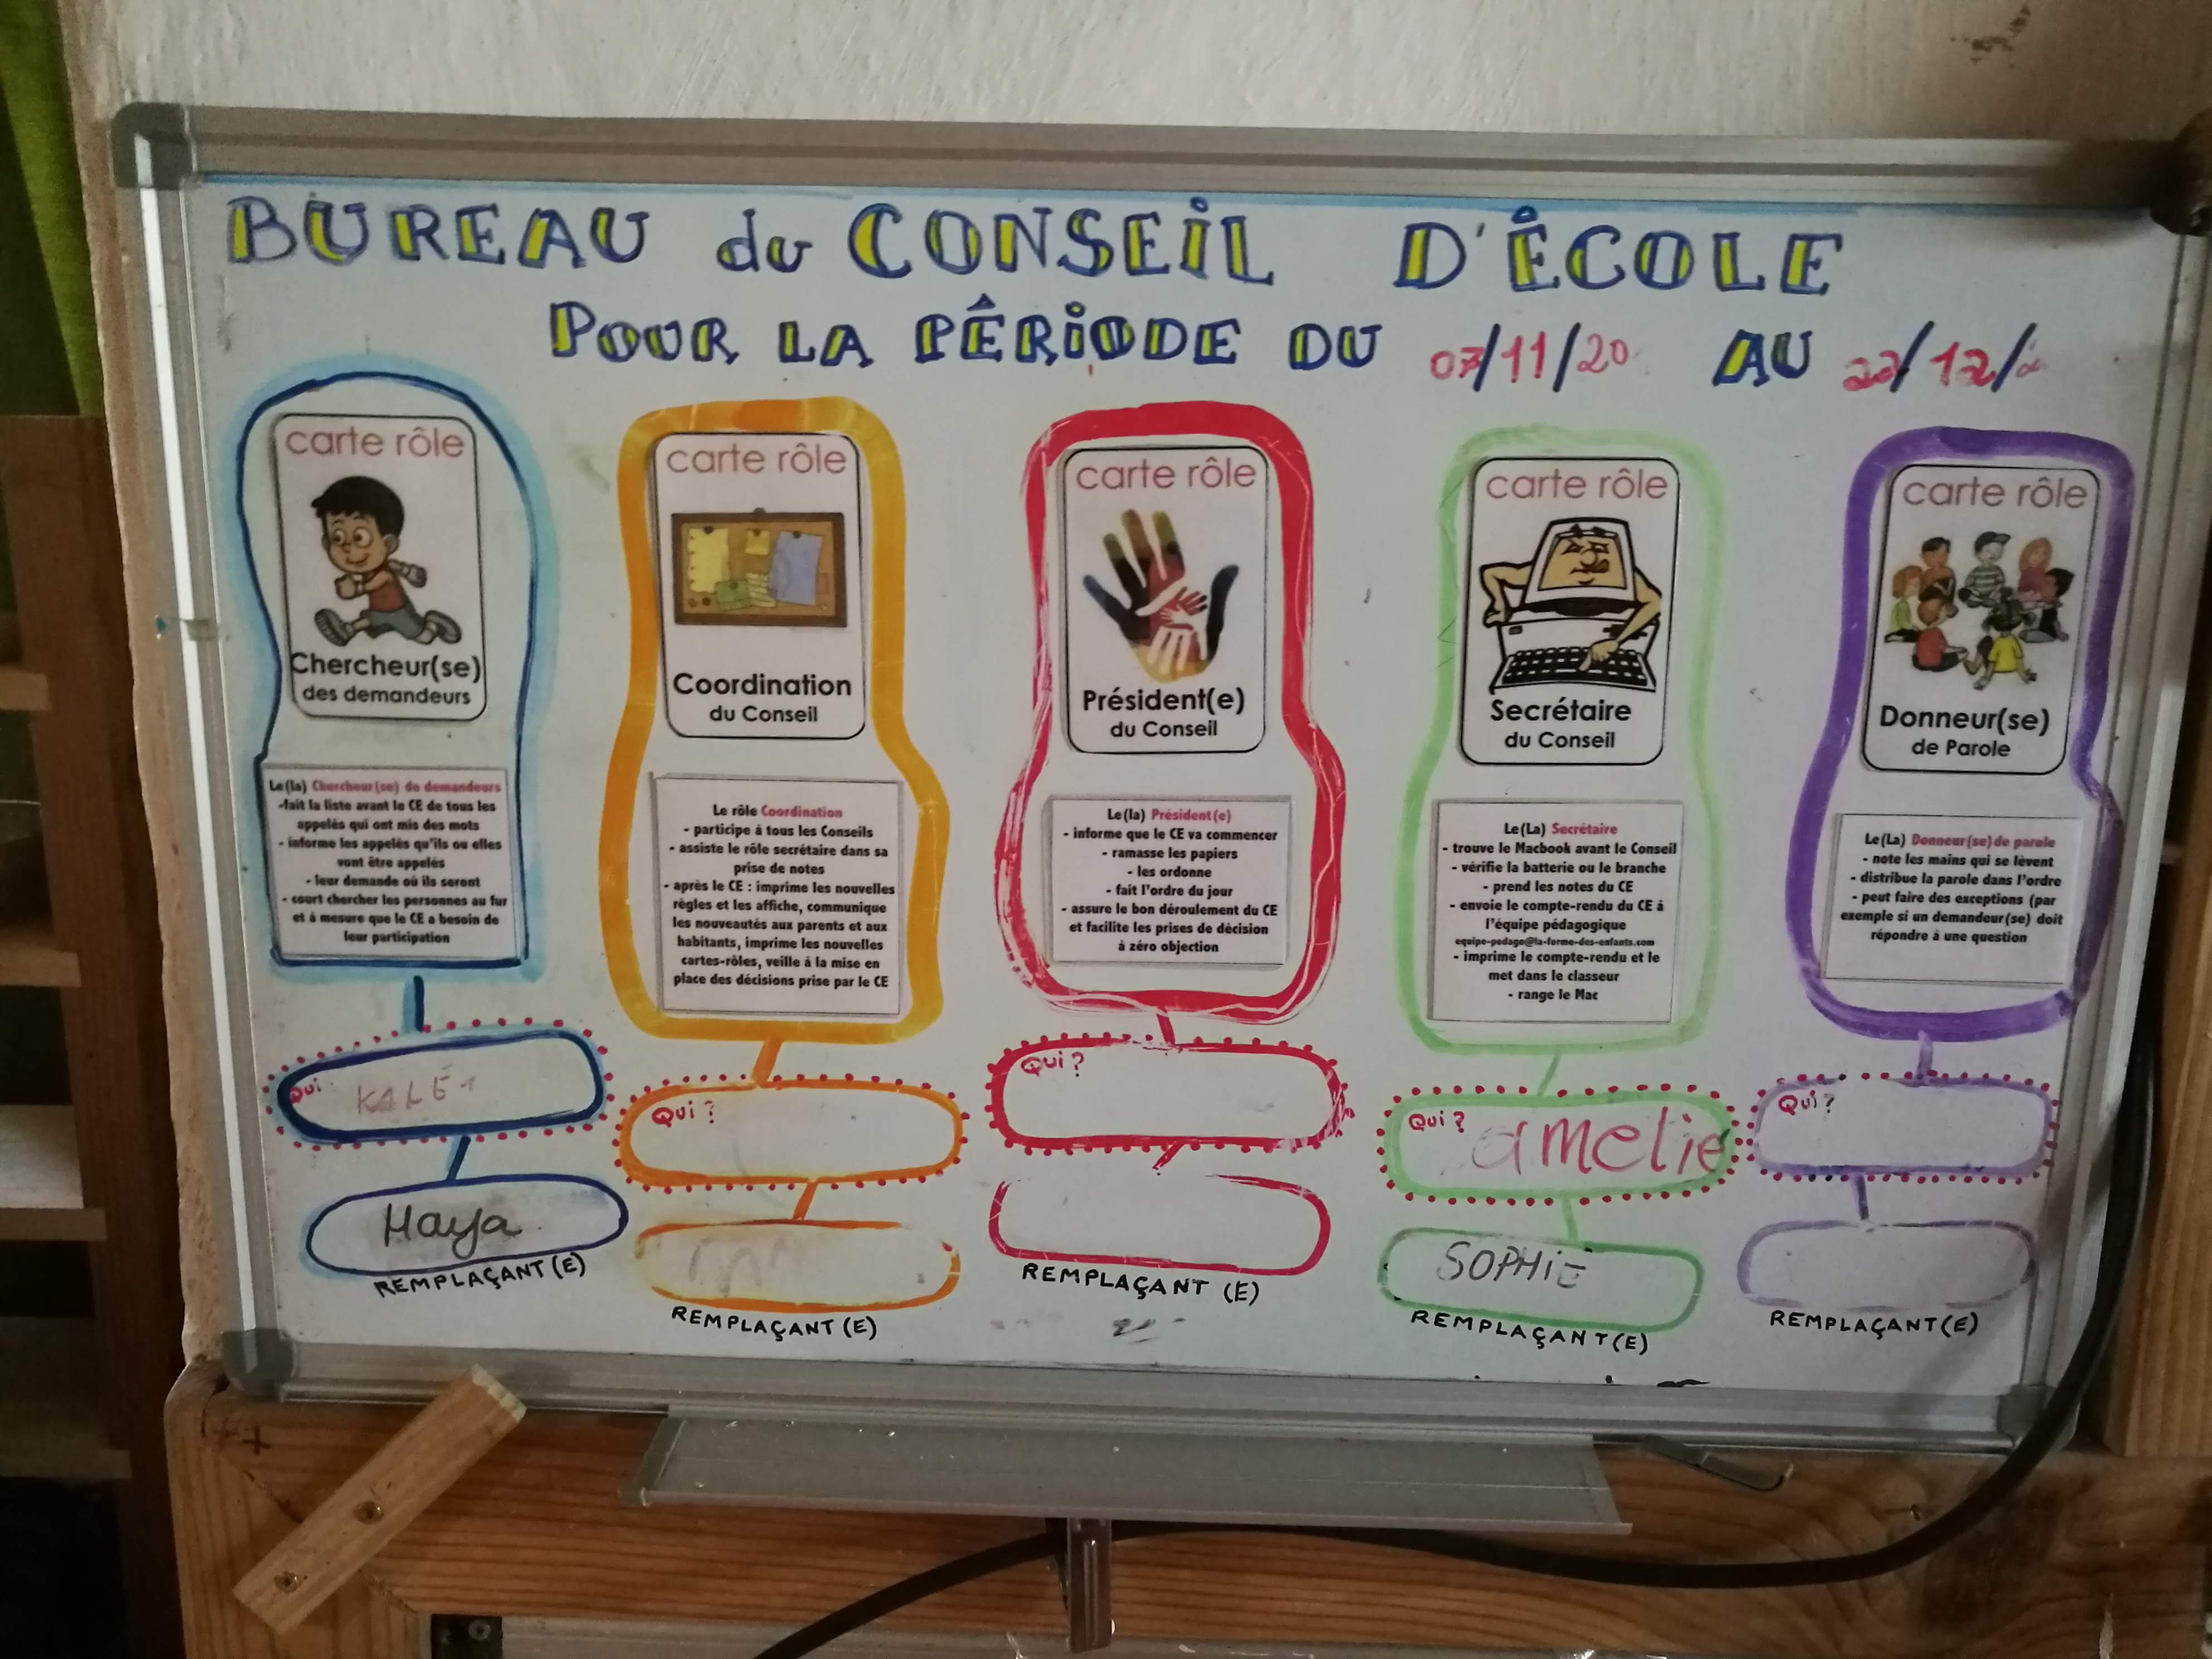 BUREAU du CONSEIL D'ÉCOLE
POUR LA PÉRIODE DU 07/11/20 AU 22/12/
carte rôle
Chercheur(se)
des demandeurs
Le(la) Chercheur(se) de demandeurs
-fait la liste avant le CE de tous les
appelés qui ont mis des mots
- informe les appelés qu'ils ou elles
vont être appelés
- leur demande où ils seront
- court chercher les personnes au fur
et à mesure que le CE a besoin de
leur participation
Qui
Haya
REMPLAÇANT(E)
carte rôle
Coordination
du Conseil
Le rôle Coordination
- participe à tous les Conseils
- assiste le rôle secrétaire dans sa
prise de notes
- après le CE : imprime les nouvelles
règles et les affiche, communique
les nouveautés aux parents et aux
habitants, imprime les nouvelles
cartes-rôles, veille à la mise en
place des décisions prise par le CE
Qui ?
REMPLAÇANT(E)
carte rôle
Président(e)
du Conseil
Le(la) Président(e)
- informe que le CE va commencer
- ramasse les papiers
- les ordonne
- fait l'ordre du jour
- assure le bon déroulement du CE
et facilite les prises de décision
à zéro objection
Qui ?
REMPLAÇANT (E)
carte rôle
Secrétaire
du Conseil
Le(La) Secrétaire
- trouve le Macbook avant le Conseil
- vérifie la batterie ou le branche
- prend les notes du CE
- envoie le compte-rendu du CE à
l'équipe pédagogique
equipe-pedago@la-ferme-des-enfants.com
- imprime le compte-rendu et le
met dans le classeur
- range le Mac
Qui ? amelie
SOPHiE
REMPLAÇANT(E)
carte rôle
Donneur(se)
de Parole
Le(La) Donneur(se) de parole
- note les mains qui se lèvent
- distribue la parole dans l'ordre
- peut faire des exceptions (par
exemple si un demandeur(se) doit
répondre à une question
Qui ?
REMPLAÇANT(E)